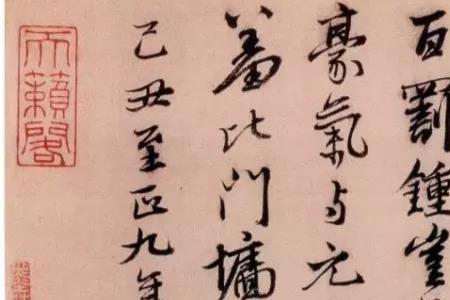 百罰鍾
豪氣与元
蓋比門墉
己丑至正九年
天籟閣